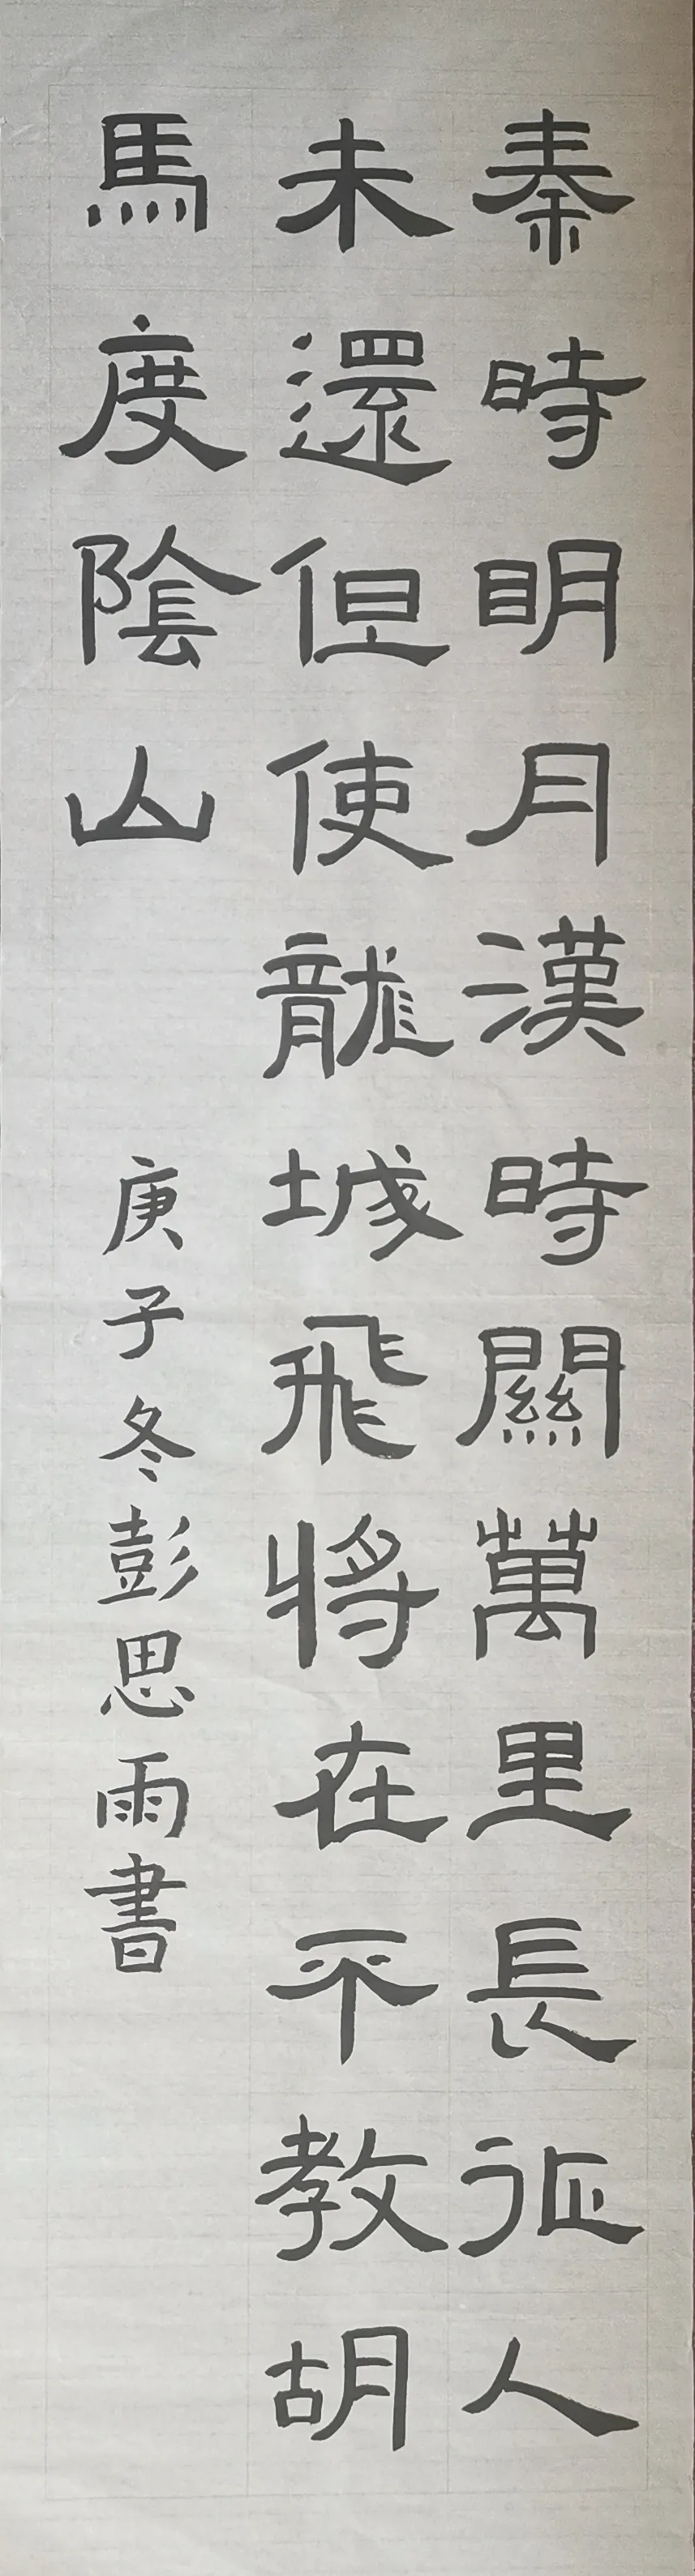 秦時明月漢時關萬里長征人
未還但使龍城飛將在不教胡
馬度陰山
庚子冬彭思雨書